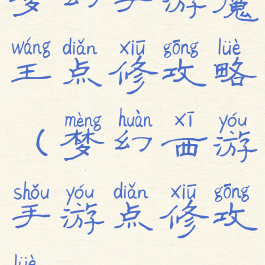 梦幻手游魔
wáng diǎn xiū gōng lüè
王点修攻略
mèng huàn xī yóu
(梦幻西游
shǒu yóu diǎn xiū gōng
手游点修攻
lüè